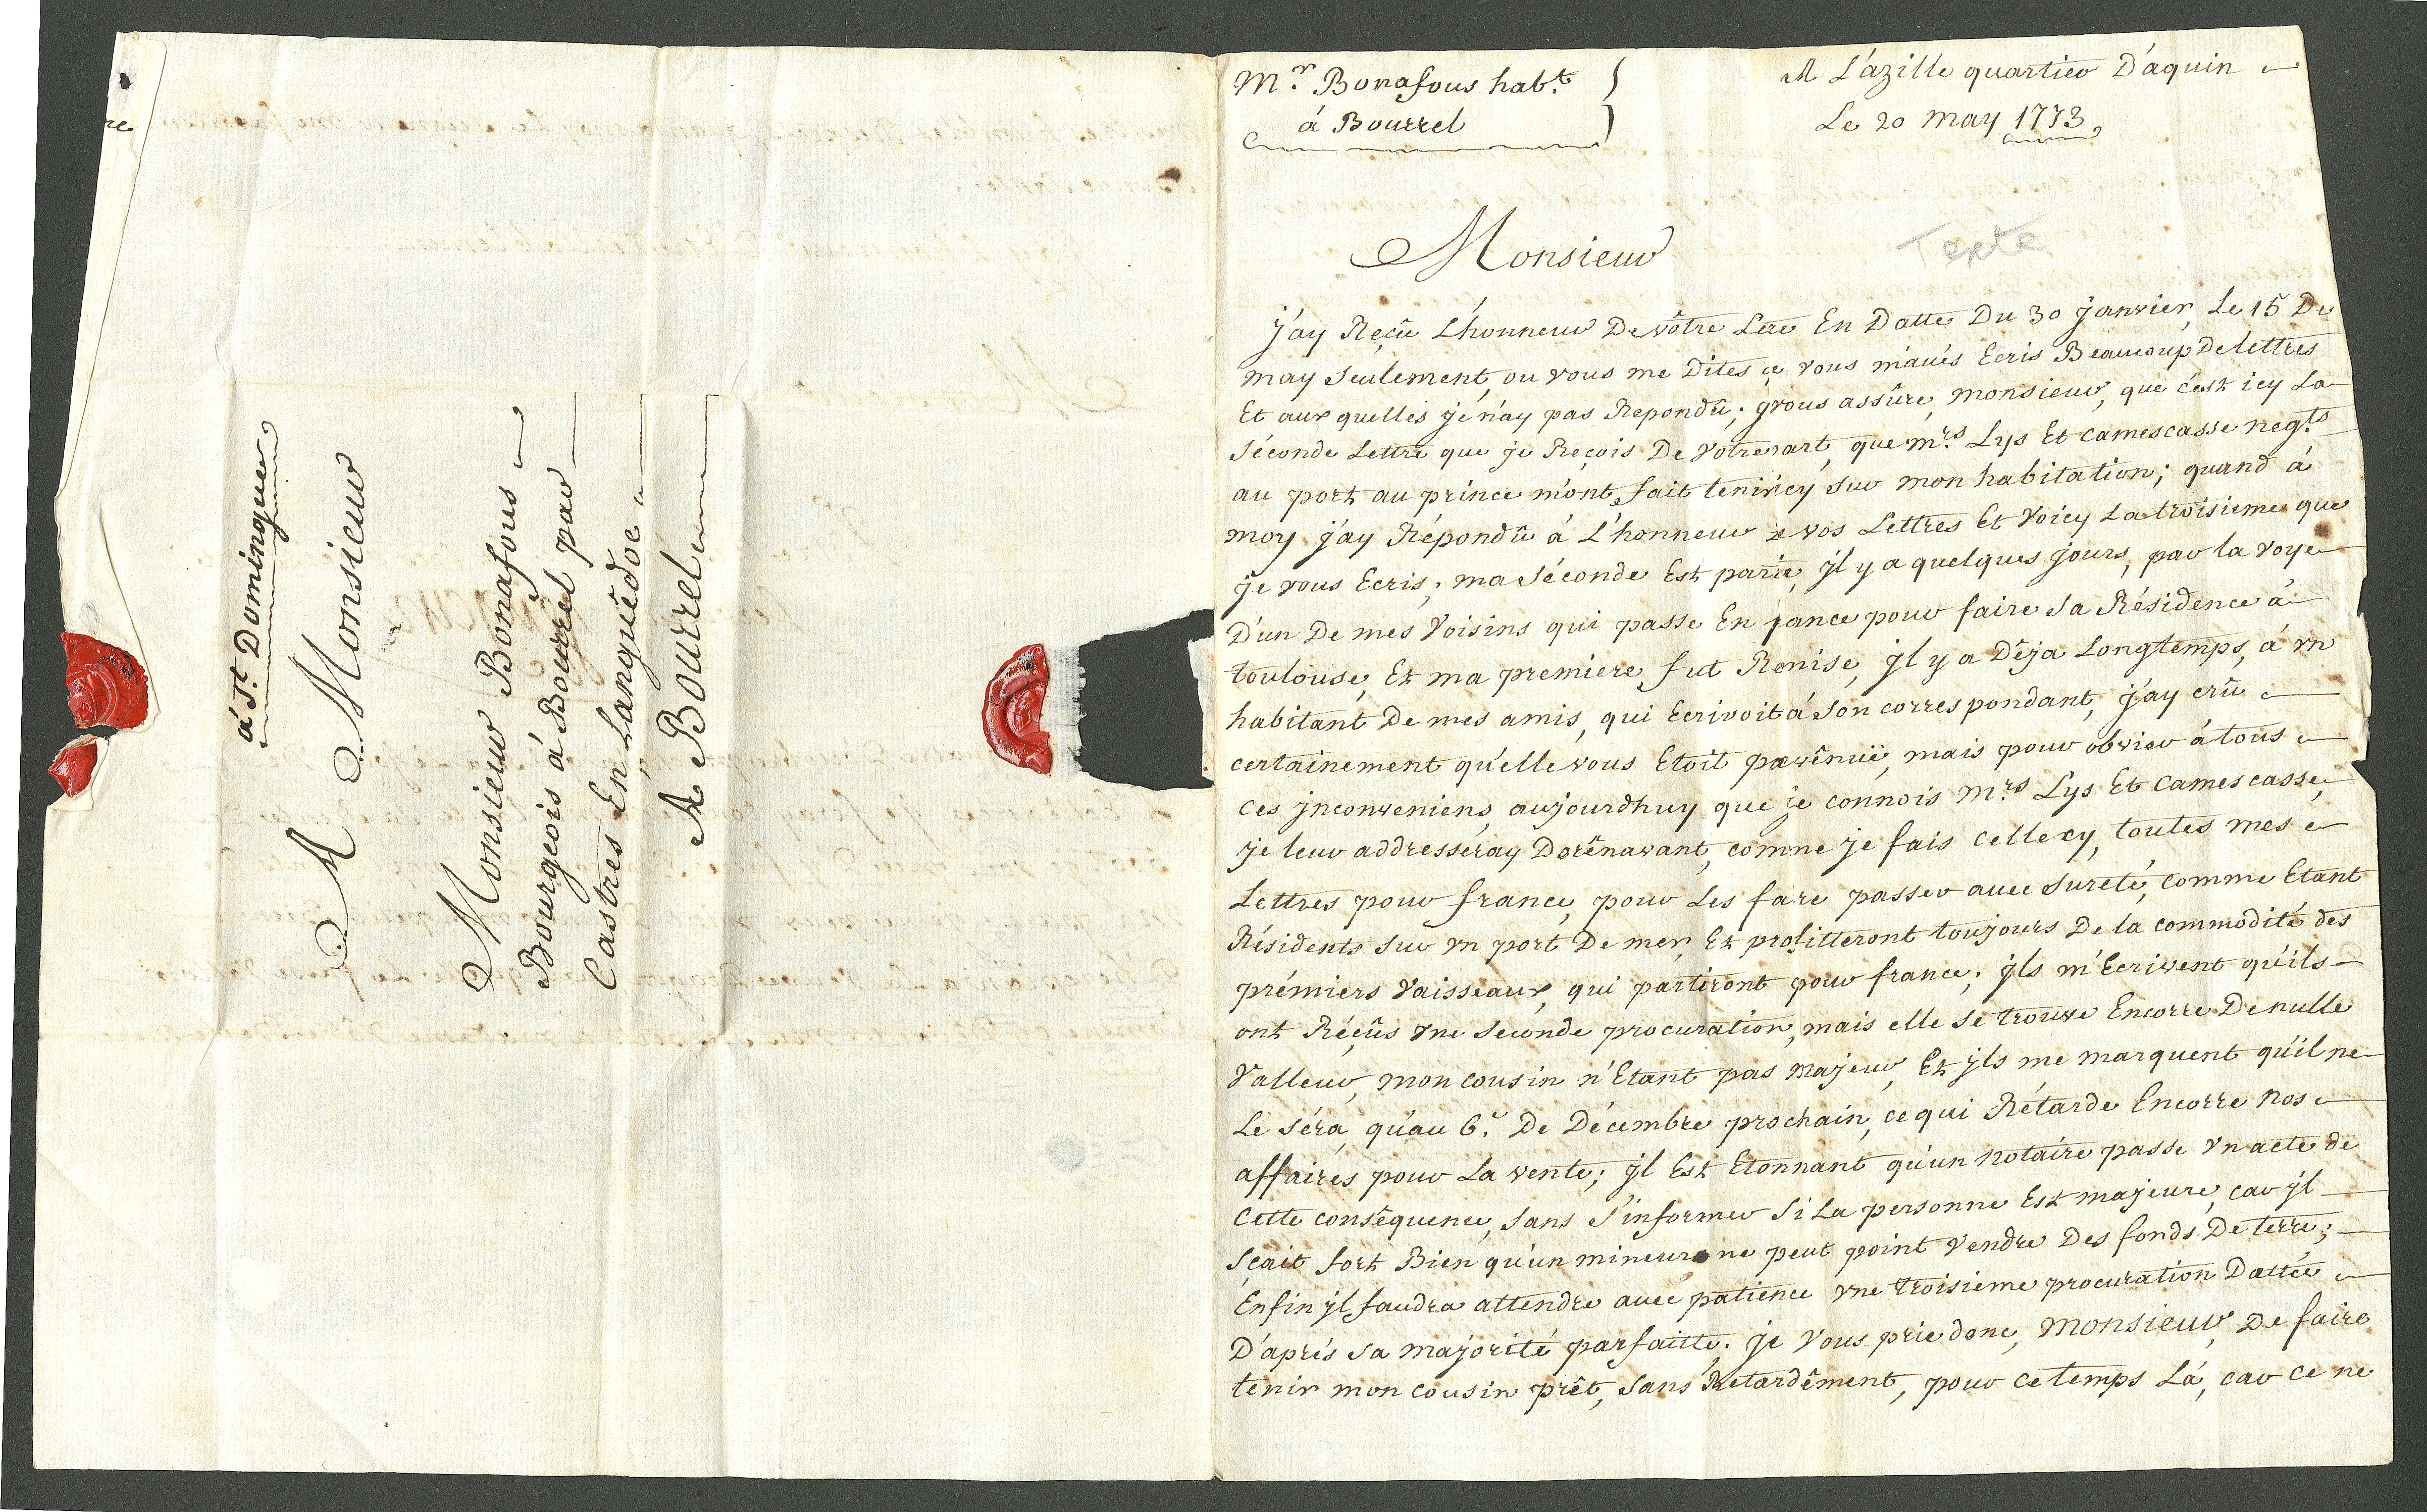 à St. Domingue
A Monsieur
Monsieur Bonafous
Bourgeois à Bourrel par
Castres En Languédoc
A Bourrel
Mr. Bonafous habt.
á Bourrel
A L'azille quartier D'aquin
Le 20 may 1773
Texte
Monsieur
j'ay Reçû L'honneur De vôtre Lere En Datte Du 30 janvier, Le 15 De
may seulement, ou vous me Dites vous m'avés Ecris Beaucoup De lettres
Et aux quelles je n'ay pas Repondû; jvous assûre, monsieur, que c'est icy La
séconde Lettre que je Reçois De votre part, que mrs. Lys Et camescasse negts.
au port au prince m'ont fait tenir icy sur mon habitation; quand à
moy j'ay Répondû à L'honneur De vos Lettres Et voicy La troisieme que
je vous Ecris; ma séconde Est partie, jl y a quelques jours, par la voye
D'un De mes voisins qui passe En france pour faire sa Résidence à
toulouse, Et ma premiere fut Remise, jl y a Déja Longtemps, à vn
habitant De mes amis, qui Ecrivoit á son correspondant, j'ay crû
certainement qu'elle vous Etoit parvênuë, mais pour obvier à tous
ces jnconveniens, aujourdhuy que je connois Mrs. Lys Et camescasse,
je leur addresseray Dorênavant, comme je fais celle cy, toutes mes
Lettres pour france, pour Les faire passer avec sureté, comme Etant
Résidents sur vn port De mer, Et profitteront toujours De la commodité des
prémiers vaisseaux, qui partiront pour france; jls m'Ecrivent qu'ils
ont Réçûs vne seconde procuration, mais elle se trouve Encorre De nulle
valleur, mon cousin n'Etant pas majeur, Et jls me marquent qu'il ne
Le séra, qu'au 6e. De Décembre prochain, ce qui Rétarde Encorre nos
affaires pour La vente; jl Est Etonnant qu'un notaire passe vn acte de
cette consêquence, sans s'informer si La personne Est majeure, car jl
sçait fort Bien qu'un mineur ne peut point vendre Des fonds De terre;
Enfin jl faudra attendre avec patience vne troisieme procuration Dattée
D'aprés sa majorité parfaitte. je vous prie donc, Monsieur, De faire
tenir mon cousin prêt, sans Retardêment, pour ce temps Lá, car ce ne